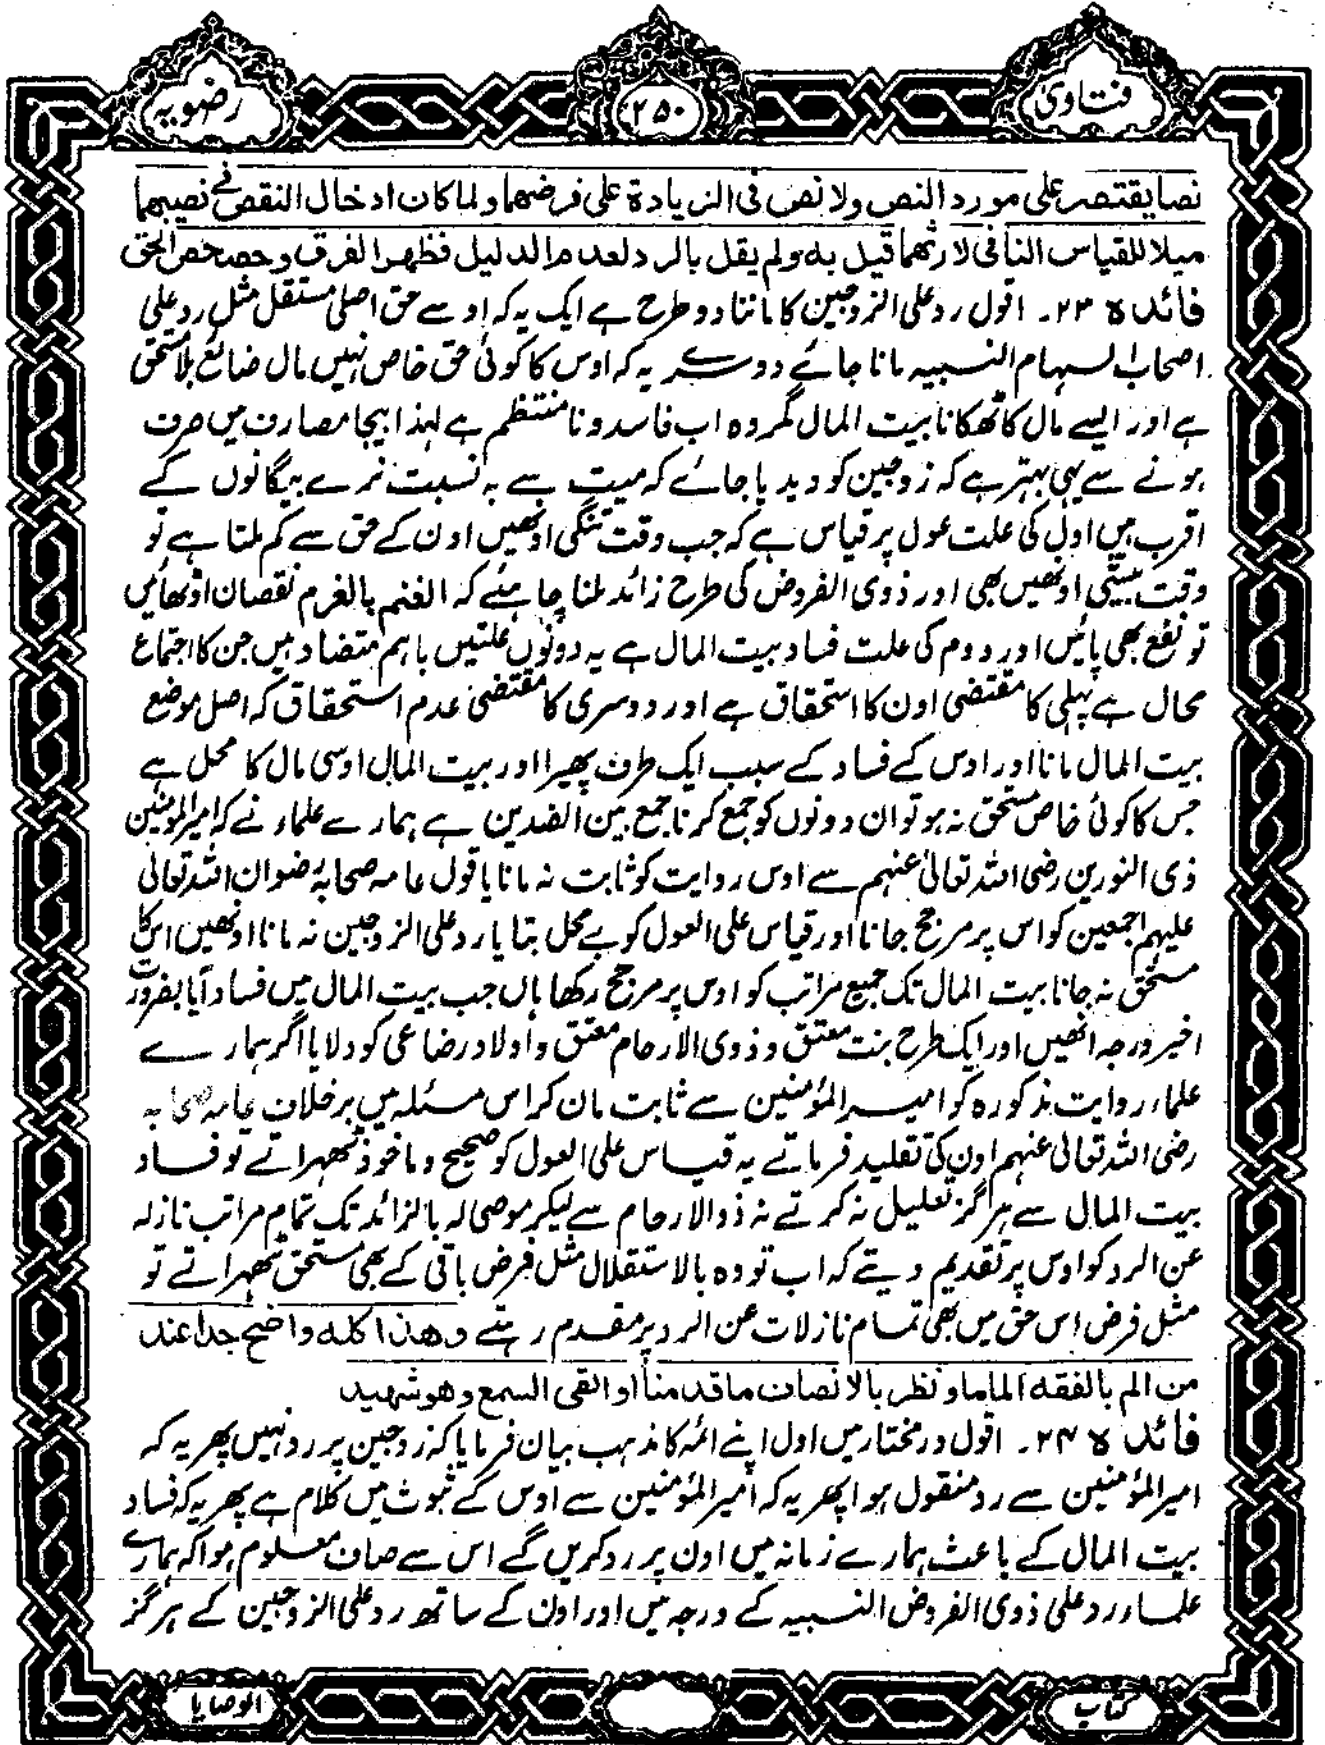 فتاوی
۲۵۰
رضویہ
نصا یقتصر علی مورد النص ولا نص فی الزیادة علی فرضهما ولما کان ادخال النقص فی نصیبهما
میلا للقیاس النافی لارثهما قیل به ولم یقل بالرد لعدم الدلیل فظهر الفرق وحصحص الحق
فائدہ ۲۳۔ اقول رد علی الزوجین کا ماننا دو طرح ہے ایک یہ کہ اوسے حق اصلی مستقل مثل رد علی
اصحاب السہام النسبیہ مانا جائے دوسرے یہ کہ اوس کا کوئی حق خاص نہیں مال ضائع بلا مستحق
ہے اور ایسے مال کا ٹھکانا بیت المال مگر وہ اب فاسد و نامنتظم ہے لہذا بیجا مصارف میں صرف
ہونے سے یہی بہتر ہے کہ زوجین کو دیدیا جائے کہ میت سے بہ نسبت نرے بیگانوں کے
اقرب ہیں اول کی علت عول پر قیاس ہے کہ جب وقت تنگی اونھیں اون کے حق سے کم ملتا ہے تو
وقت بیشی اونھیں بھی اور ذوی الفروض کی طرح زائد ملنا چاہئے کہ الغنم بالغرم نقصان اوٹھائیں
تو نفع بھی پائیں اور دوم کی علت فساد بیت المال ہے یہ دونوں علتیں باہم متضاد ہیں جن کا اجتماع
محال ہے پہلی کا مقتضی اون کا استحقاق ہے اور دوسری کا مقتضی عدم استحقاق کہ اصل موضع
بیت المال مانا اور اوس کے فساد کے سبب ایک طرف پھیرا اور بیت المال اوسی مال کا محل ہے
جس کا کوئی خاص مستحق نہ ہو تو ان دونوں کو جمع کرنا جمع بین الضدین ہے ہمارے علماء نے کہ امیر المؤمنین
ذی النورین رضی اللہ تعالیٰ عنہم سے اوس روایت کو ثابت نہ مانا یا قول عامہ صحابہ رضوان اللہ تعالیٰ
علیہم اجمعین کو اس پر مرجح جانا اور قیاس علی العول کو بے محل بتایا رد علی الزوجین نہ مانا اونھیں اس کا
مستحق نہ جانا بیت المال تک جمیع مراتب کو اوس پر مرجح رکھا ہاں جب بیت المال میں فساد آیا بضرورت
اخیر درجہ انھیں اور ایک طرح بنت معتق و ذوی الارحام معتق و اولاد رضاعی کو دلایا اگر ہمارے
علماء روایت مذکورہ کو امیر المؤمنین سے ثابت مان کر اس مسئلہ میں برخلاف عامہ صحابہ
رضی اللہ تعالیٰ عنہم اون کی تقلید فرماتے یہ قیاس علی العول کو صحیح و ماخوذ ٹھہراتے تو فساد
بیت المال سے ہرگز تعلیل نہ کرتے نہ ذوالارحام سے لیکر موصی لہ بالزائد تک تمام مراتب نازلہ
عن الرد کو اوس پر تقدیم دیتے کہ اب تو وہ بالاستقلال مثل فرض باقی کے بھی مستحق ٹھہراتے تو
مثل فرض اس حق میں بھی تمام نازلات عن الرد پر مقدم رہتے وهذا کله واضح جدا عند
من الم بالفقه الماما ونظر بالانصاف ما قدمنا او القی السمع وهو شهید
فائدہ ۲۴۔ اقول درمختار میں اول اپنے ائمہ کا مذہب بیان فرمایا کہ زوجین پر رد نہیں پھر یہ کہ
امیر المؤمنین سے رد منقول ہوا پھر یہ کہ امیر المؤمنین سے اوس کے ثبوت میں کلام ہے پھر یہ کہ فساد
بیت المال کے باعث ہمارے زمانہ میں اون پر رد کریں گے اس سے صاف معلوم ہوا کہ ہمارے
علماء رد علی ذوی الفروض النسبیہ کے درجہ میں اور اون کے ساتھ رد علی الزوجین کے ہرگز
کتاب
الوصایا